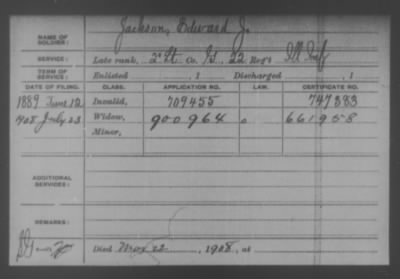 NAME OF SOLDIER: Jackson, Edward J.
SERVICE: Late rank, 2 Lt Co. G, 22 Reg't Ill Inf
TERM OF SERVICE: Enlisted , 1 Discharged , 1
DATE OF FILING. CLASS. APPLICATION NO. LAW. CERTIFICATE NO.
1889 June 12 Invalid, 709455 747383
908 July 23 Widow, 900964 661958
Minor,
ADDITIONAL SERVICES:
REMARKS:
Died May 22, 1908, at